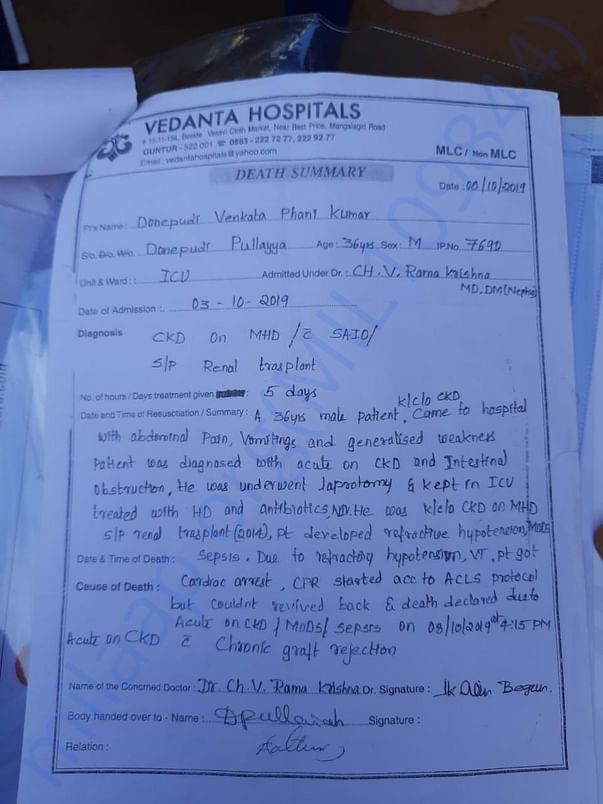 VEDANTA HOSPITALS
# 15-11-154, Beside : Vasavi Cloth Market, Near Best Price, Mangalagiri Road
GUNTUR - 522 001 ☎ 0863 - 222 72 77, 222 92 77
Email : vedantahospitals@yahoo.com
MLC / Non MLC
DEATH SUMMARY
Date : 08/10/2019
Pt's Name : Donepudi Venkata Phani Kumar
S/o. D/o. W/o. Donepudi Pullayya Age : 36yrs Sex : M IP.No. 7690
Unit & Ward : : ICU Admitted Under Dr. : CH. V. Rama Krishna
MD, DM (Nephro)
Date of Admission : . 03 - 10 - 2019
Diagnosis CKD On MHD / c̄ SAIO /
S/P Renal trasplant
No. of hours / Days treatment given : 5 days
k/c/o CKD
Date and Time of Resusctiation / Summary : A 36yrs male patient, Came to hospital
with abdominal Pain, Vomitings and generalised weakness
Patient was diagnosed with acute on CKD and Intestinal
obstruction, He was underwent laprotomy & kept in ICU
treated with HD and antibiotics, He was k/c/o CKD on MHD
S/P renal trasplant (2014), pt developed refractive hypotension, MODS
Date & Time of Death : Sepsis. Due to refractory hypotension, VT, pt got
Cause of Death : Cardiac arrest, CPR started acc to ACLS protocol
but couldnt revived back & death declared due to
Acute on CKD / MODS / Sepsis on 08/10/2019 at 4:15 PM
Acute on CKD c̄ Chronic graft rejection
Name of the Concrned Doctor : Dr. Ch. V. Rama Krishna Dr. Signature : Begum.
Body handed over to - Name : D Pullaiah Signature :
Relation : Father
milaap.org